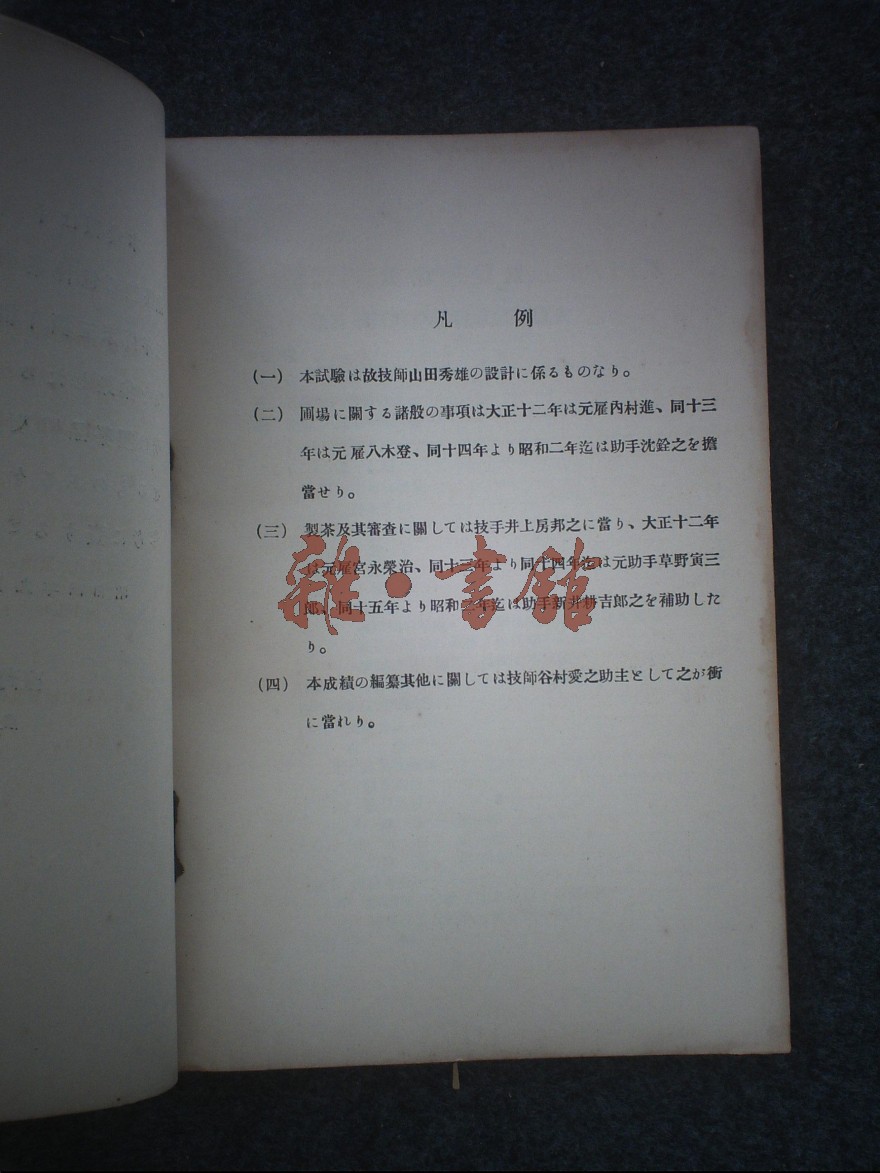 凡 例
(一) 本試驗は故技師山田秀雄の設計に係るものなり。
(二) 圃場に關する諸般の事項は大正十二年は元雇內村進、同十三
年は元雇八木登、同十四年より昭和二年迄は助手沈銓之を擔
當せり。
(三) 製茶及其審査に關しては技手井上房邦之に當り、大正十二年
は元雇宮永榮治、同十三年より同十四年迄は元助手草野寅三
郎、同十五年より昭和二年迄は助手新井耕吉郎之を補助した
り。
(四) 本成績の編纂其他に關しては技師谷村愛之助主として之が衝
に當れり。
雜·書館